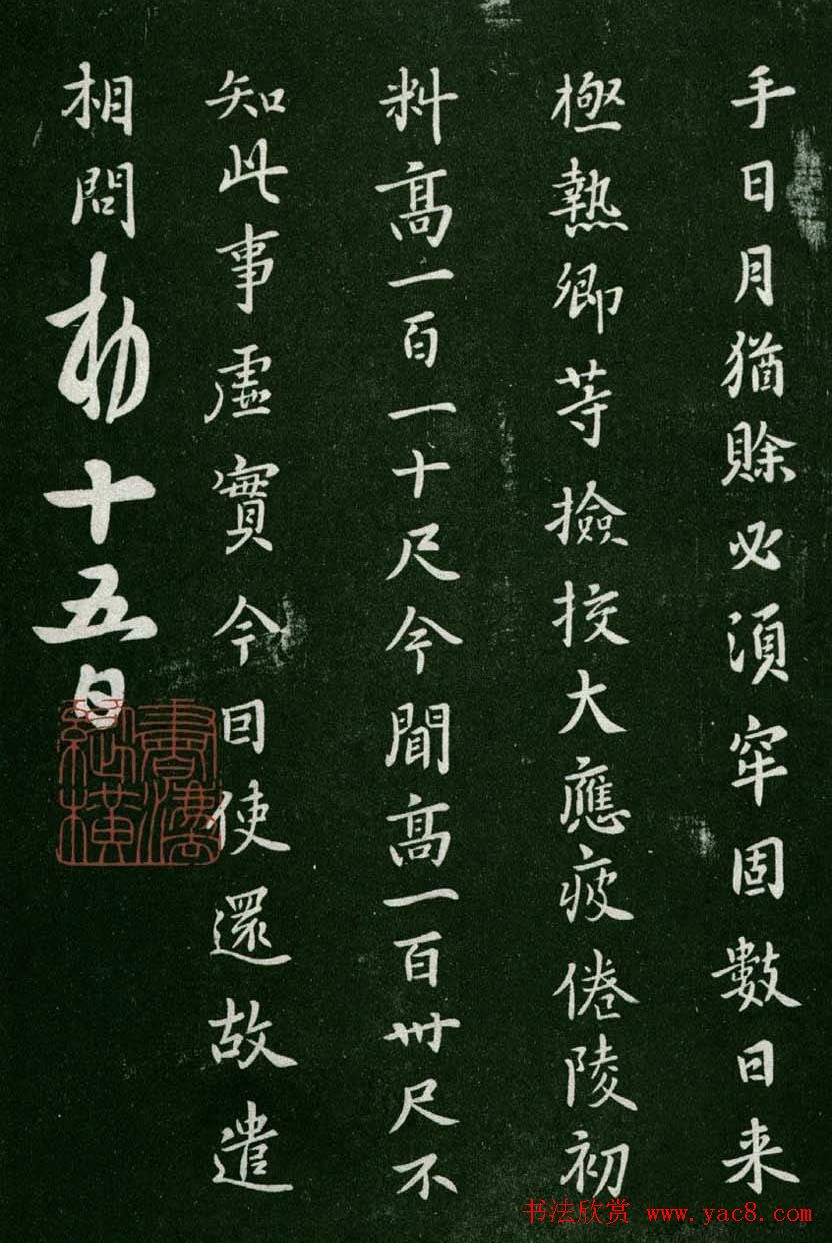 手日月猶賒必須牢固數日来
極熱卿等撿挍大應疲倦陵初
料高一百一十尺今聞高一百卅尺不
知此事虛實今囙使還故遣
相問勑十五日
書法欣赏 www.yac8.com